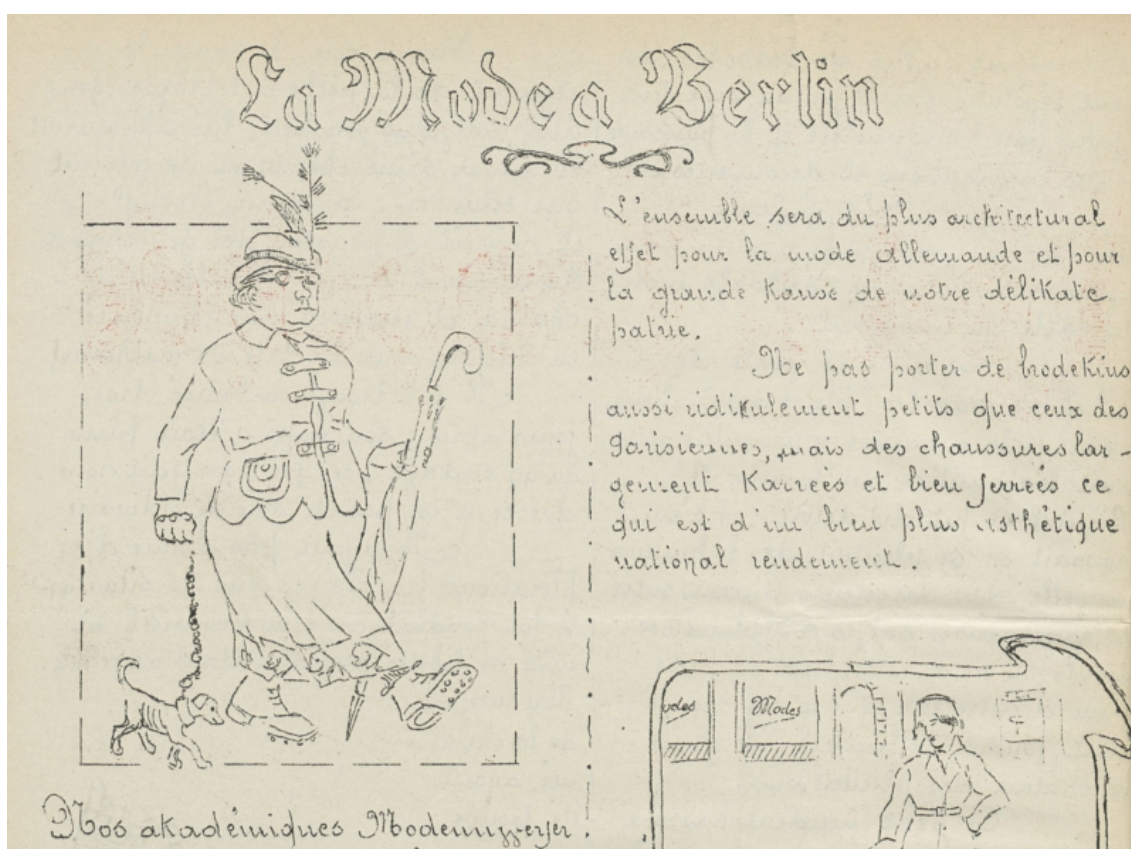 La Mode a Berlin
L'ensemble sera du plus architectural
effet pour la mode allemande et pour
la grande Kause de notre délikate
patrie.
Ne pas porter de brodekins
aussi ridikulement petits que ceux des
Parisiennes, mais des chaussures lar-
gement Karreés et bien ferreés ce
qui est d'un bien plus esthétique
national rendement.
Modes
Nos akadémiques